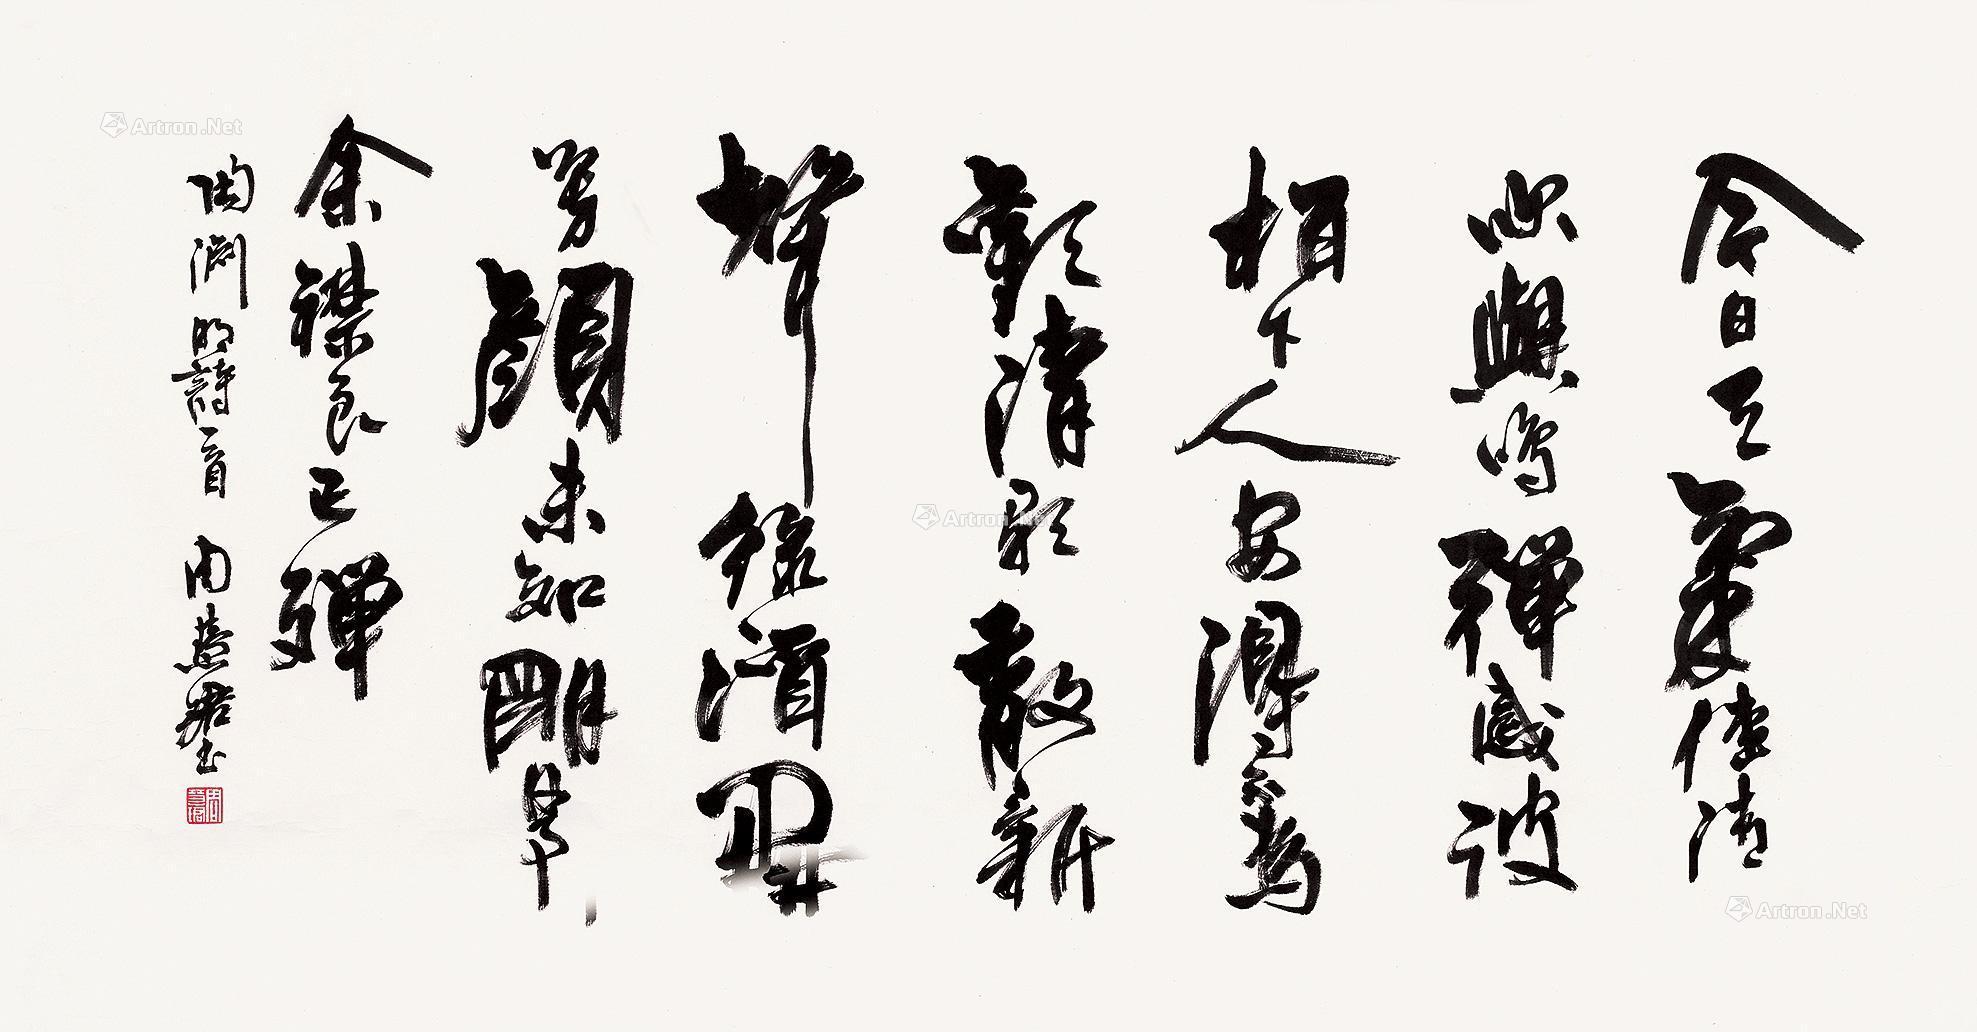 今日天氣佳清
吹與鳴彈感彼
柏下人安得不為
歡清歌散新
聲綠酒開
芳顏未知明日事
余襟良已殫
陶淵明詩一首 周慧珺書
周慧珺
Artron.Net
Artron.Net
Artron.Net